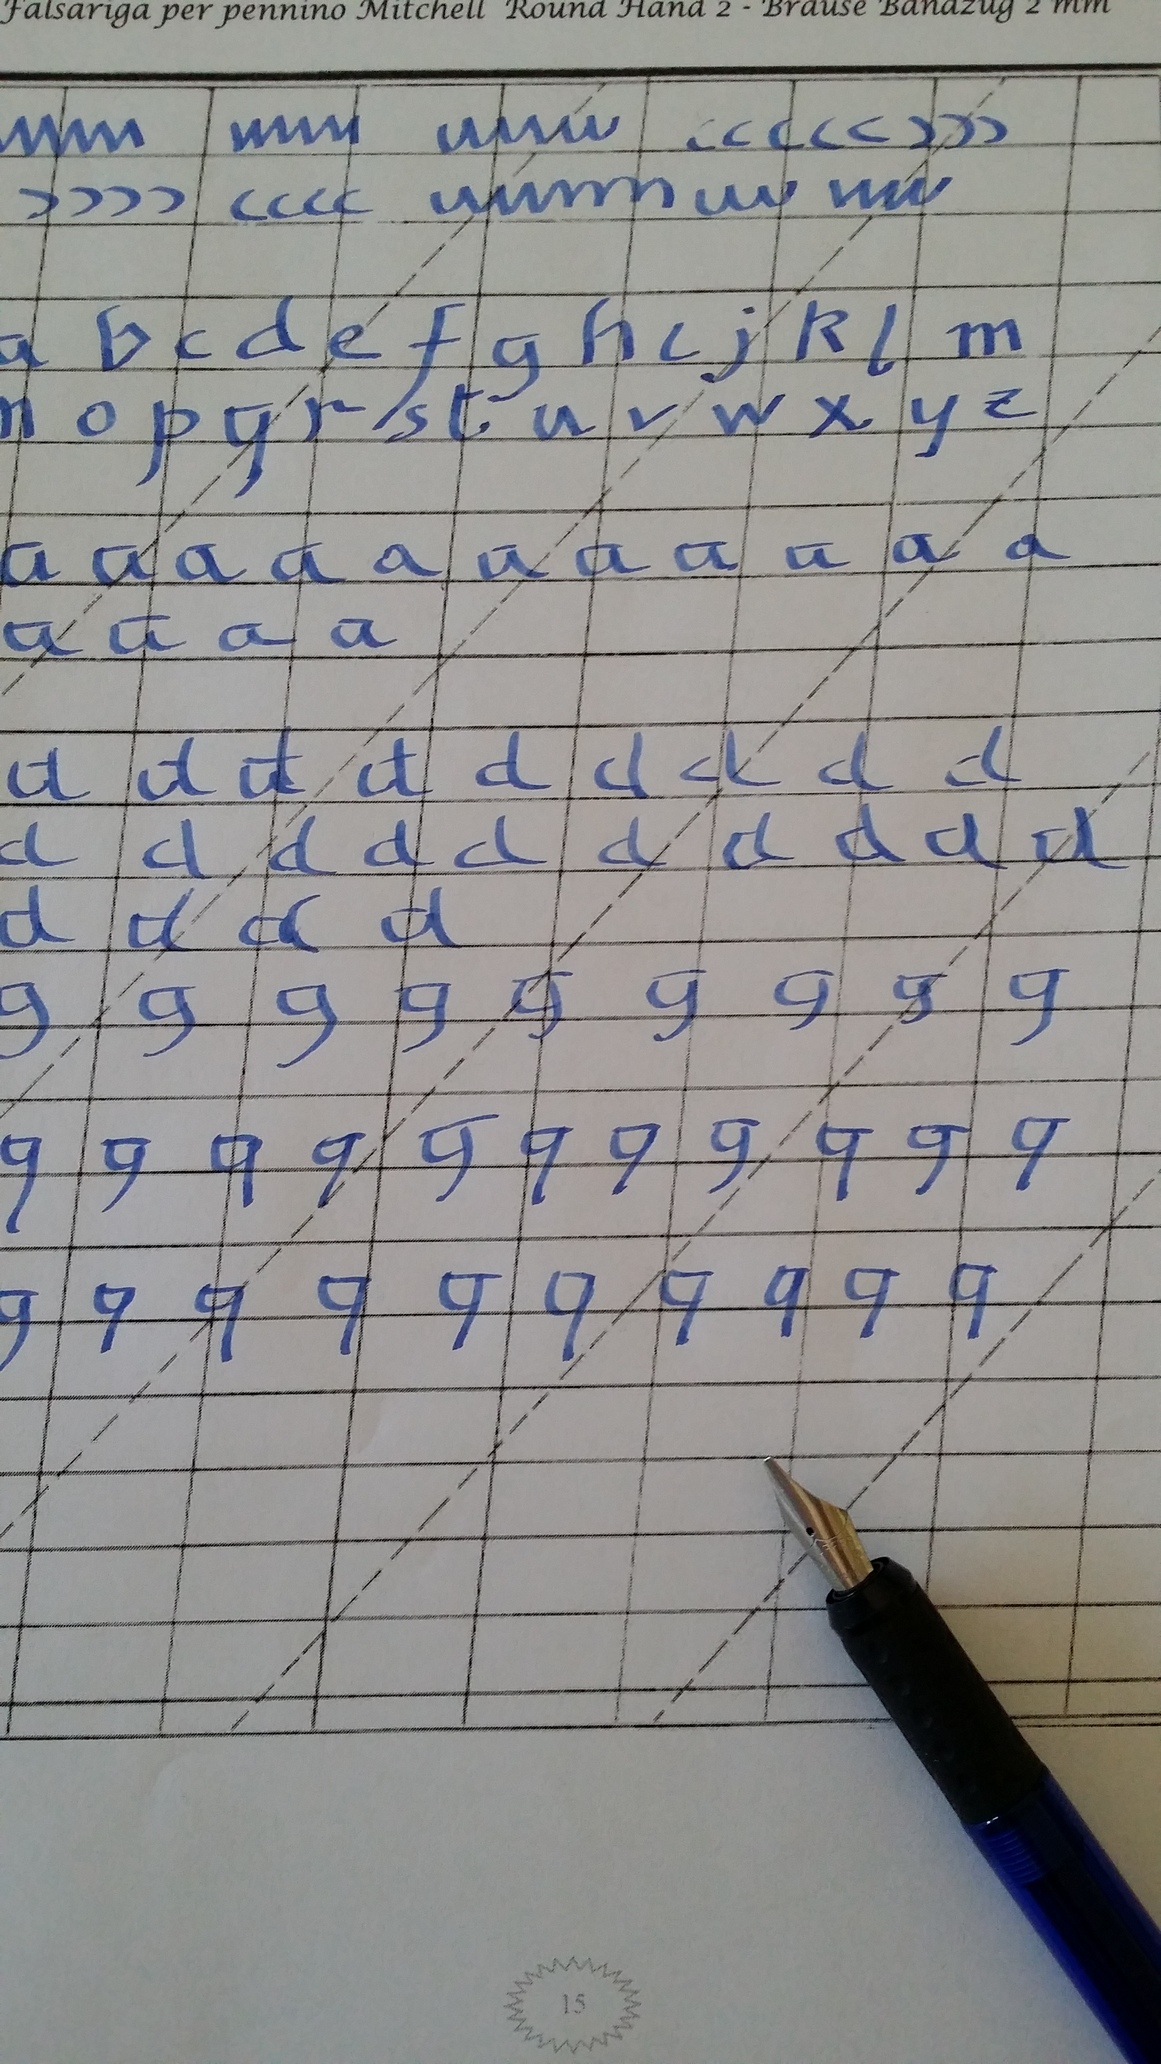 Falsariga per pennino Mitchell Round Hand 2 - Brause Bandzug 2 mm
a b c d e f g h i j k l m
n o p q r s t u v w x y z
a a a a a a a a a a a
a a a a
d d d d d d d d d
d d d d d d d d d d
d d d d
g g g g g g g g g
q q q q q q q q q q q
q q q q q q q q q q
15